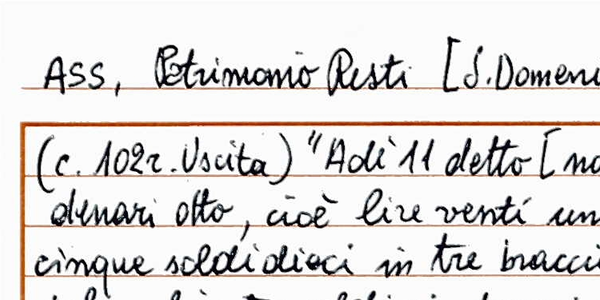 ASS, Patrimonio Resti [S. Domeni
(c. 102r. Uscita) "Adì 11 detto [no
denari otto, cioè lire venti un
cinque soldi dieci in tre bracci